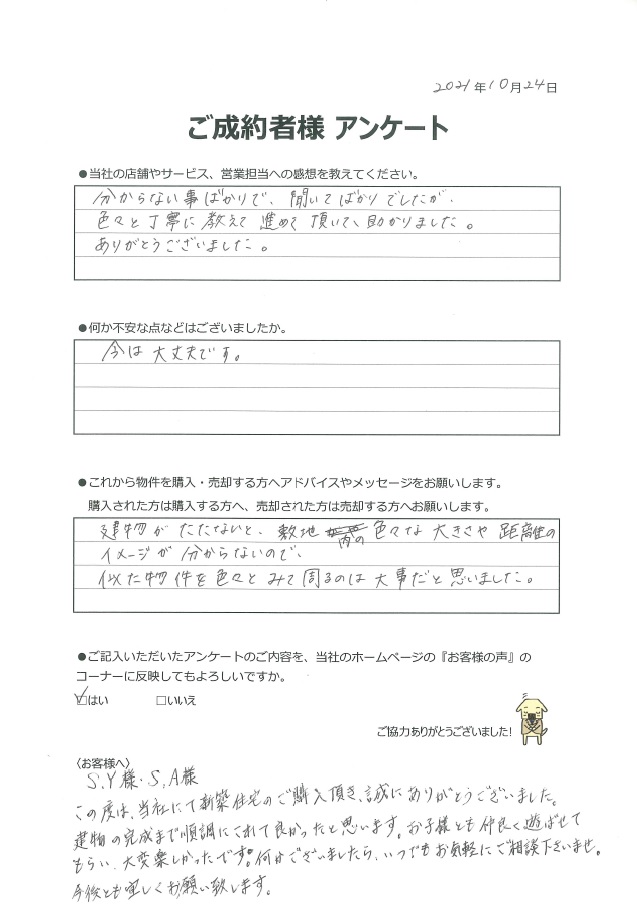 2021年10月24日
ご成約者様 アンケート
●当社の店舗やサービス、営業担当への感想を教えてください。
分からない事ばかりで、聞いてばかりでしたが、
色々と丁寧に教えて進めて頂いて、助かりました。
ありがとうございました。
●何か不安な点などはございましたか。
今は大丈夫です。
●これから物件を購入・売却する方へアドバイスやメッセージをお願いします。
購入された方は購入する方へ、売却された方は売却する方へお願いします。
建物がたたないと、敷地内の色々な大きさや距離の
イメージが分からないので、
似た物件を色々とみて周るのは大事だと思いました。
●ご記入いただいたアンケートのご内容を、当社のホームページの『お客様の声』の
コーナーに反映してもよろしいですか。
☑はい □いいえ
ご協力ありがとうございました!
〈お客様へ〉
S.Y様・S.A様
この度は、当社にて新築住宅のご購入頂き、誠にありがとうございました。
建物の完成まで順調にこれて良かったと思います。お子様とも仲良く遊ばせて
もらい、大変楽しかったです。何かございましたら、いつでもお気軽にご相談下さいませ。
今後とも宜しくお願い致します。